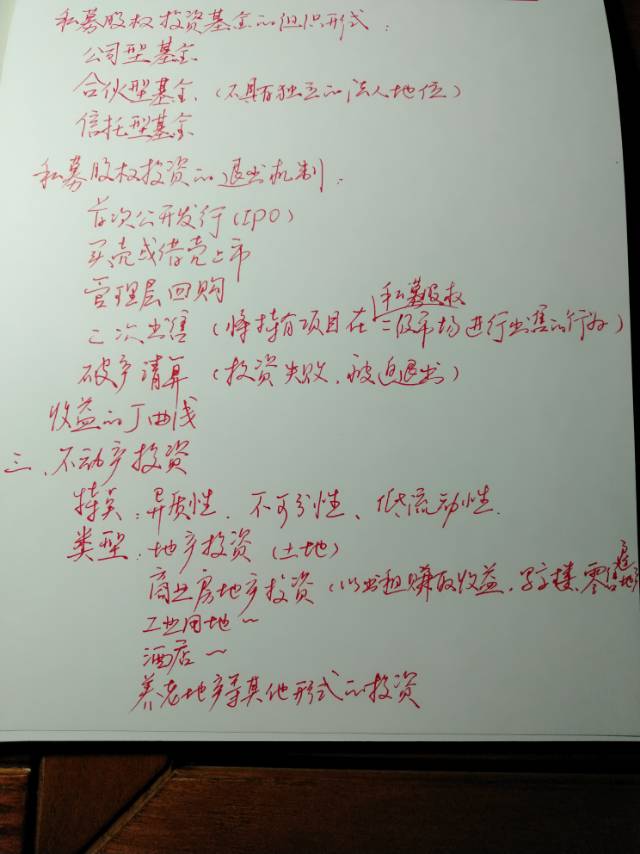 私募股权投资基金的组织形式：
公司型基金
合伙型基金．（不具有独立的法人地位）
信托型基金
私募股权投资的退出机制：
首次公开发行（IPO）
买壳或借壳上市
管理层回购
二次出售（将持有项目在私募股权二级市场进行出售的行为）
破产清算（投资失败，被迫退出）
收益的J曲线
三、不动产投资
特点：异质性、不可分性、低流动性．
类型：地产投资（土地）
商业房地产投资（以出租赚取收益，写字楼、零售房地产
工业用地～
酒店～
养老地产等其他形式的投资